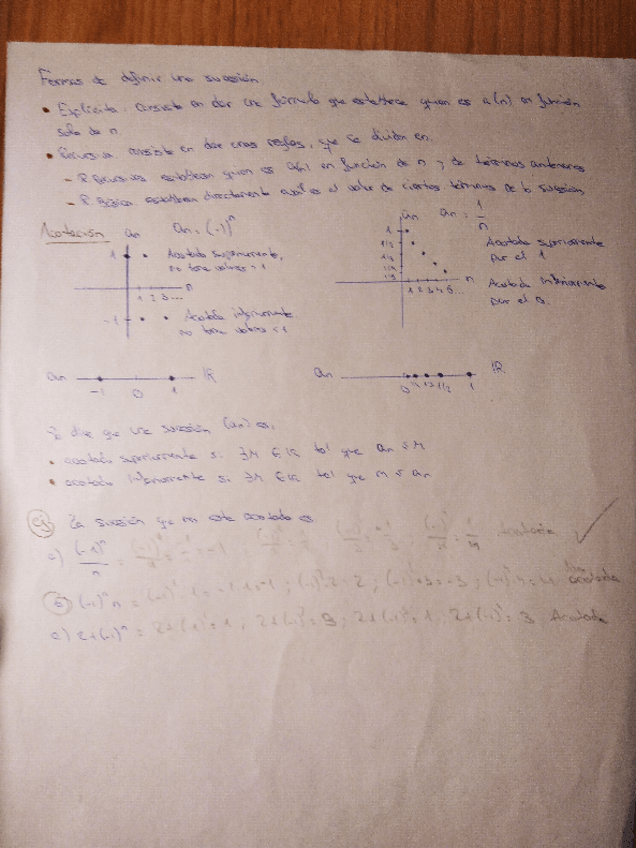 Formas de definir una sucesión
• Explícita: consiste en dar una fórmula que establece quien es a(n) en función
solo de n
• Recursiva: consiste en dar unas reglas, que se dividen en:
- R. Recursivas establecen quien es a(n) en función de n y de términos anteriores
- R. Básica establecen directamente cual es el valor de ciertos términos de la sucesión
Acotación
an
an = (-1)^n
1
Acotada superiormente,
no tiene valores > 1
n
1 2 3 ...
-1
Acotada inferiormente
no tiene valores < 1
an
an = 1/n
1
1/2
1/3
1/4
1/5
n
1 2 3 4 5 ...
Acotada superiormente
por el 1
Acotada inferiormente
por el 0.
an
-1 0 1
IR
an
0 1/4 1/3 1/2 1
IR
Se dice que una sucesión (an) es:
• acotada superiormente si ∃M ∈ IR tal que an ≤ M
• acotada inferiormente si ∃M ∈ IR tal que m ≤ an
ej La sucesión que no este acotada es
a) (-1)^n/n = = -1 ; Acotada
b) (-1)^n n = (-1)^1·1 = -1·1 = -1 ; (-1)^2·2 = 2 ; (-1)^3·3 = -3 ; (-1)^4·4 = 4 No acotada
c) 2+(-1)^n = 2+(-1)^1 = 1 ; 2+(-1)^2 = 3 ; 2+(-1)^3 = 1 ; 2+(-1)^4 = 3 Acotada